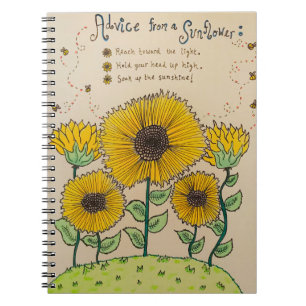 Advice from a Sunflower:
Reach toward the light,
Hold your head up high,
Soak up the sunshine!